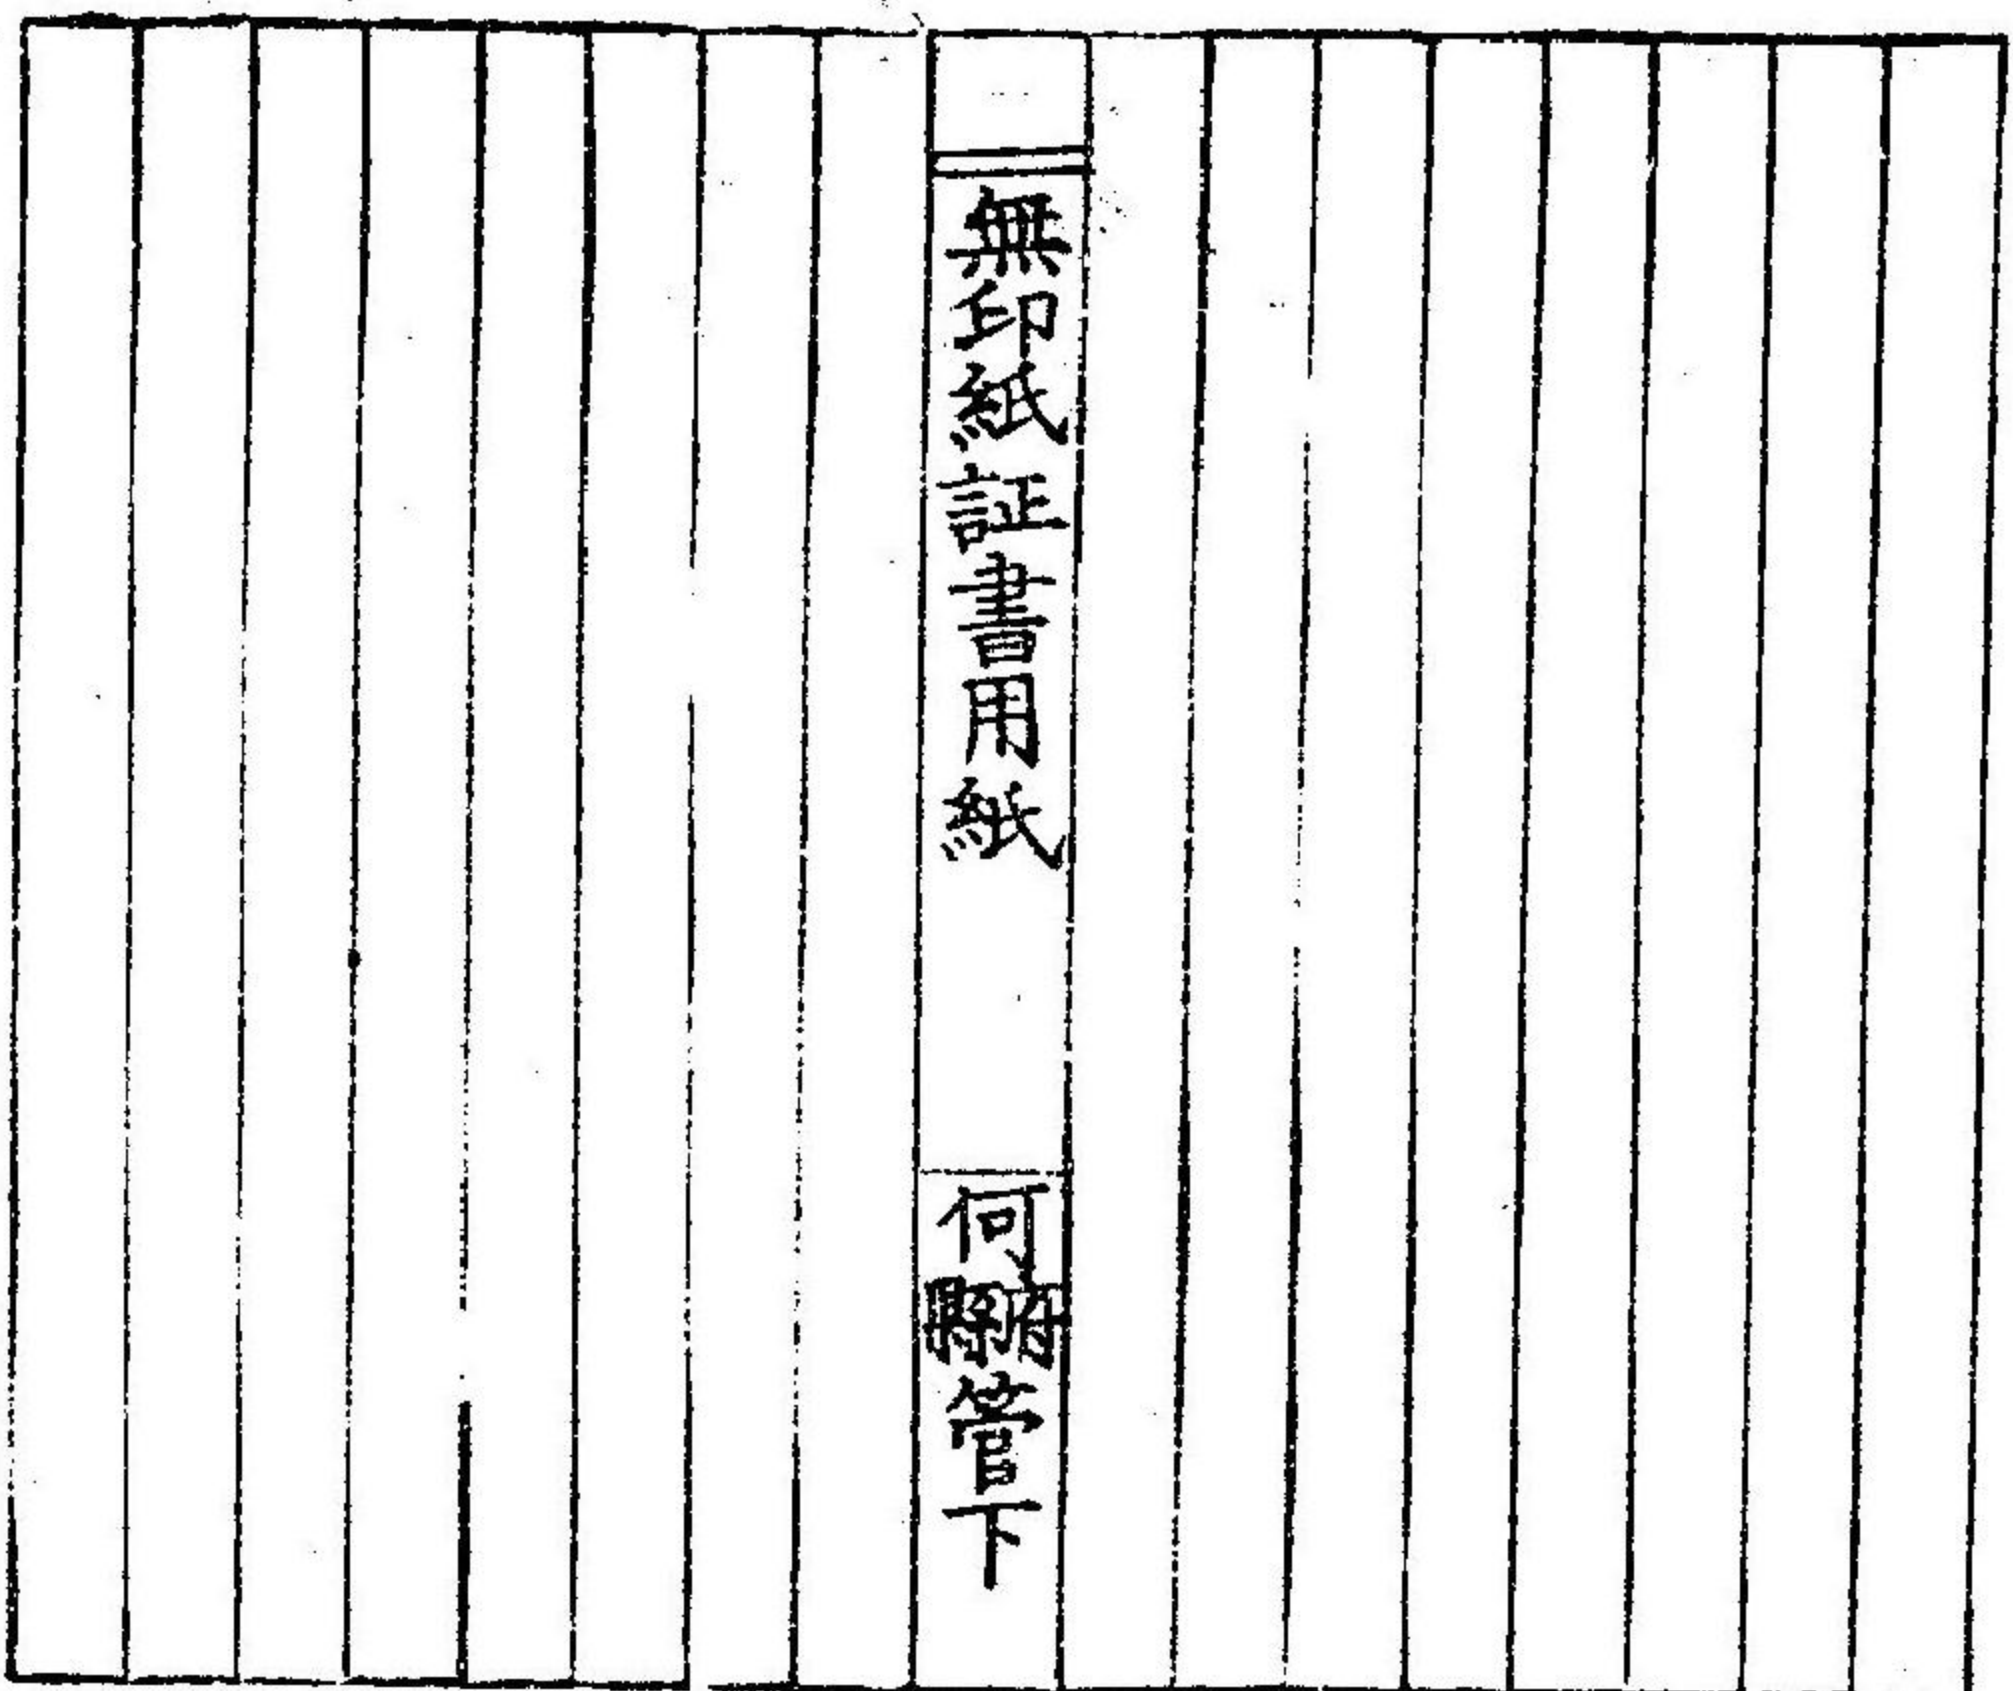 無印紙証書用紙
何府縣管下